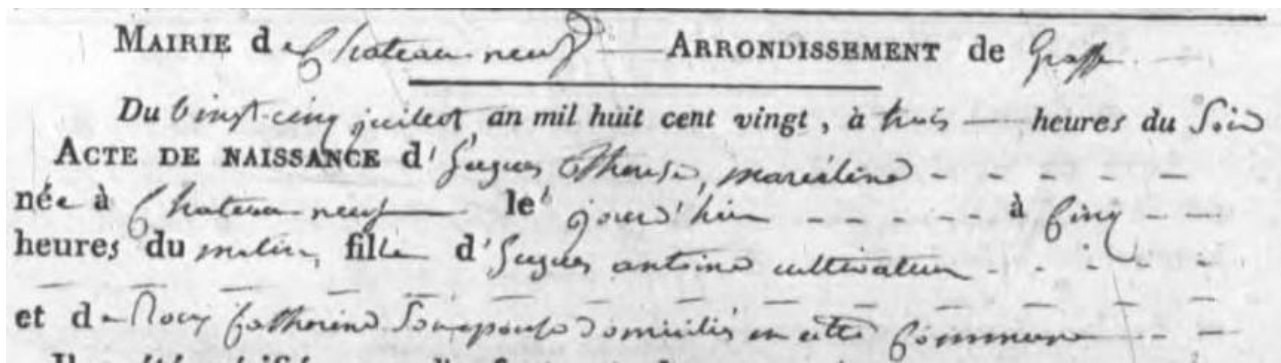 MAIRIE de Chateauneuf ARRONDISSEMENT de Grasse
Du vingt-cinq juillet, an mil huit cent vingt, à trois heures du Soir
ACTE DE NAISSANCE d'hugues Therese,
née à Chateauneuf le jourd'hui à Cinq
heures du matin, fille d'hugues antoine cultivateur
et de Catherine Son epouse domiciliés en cette Commune